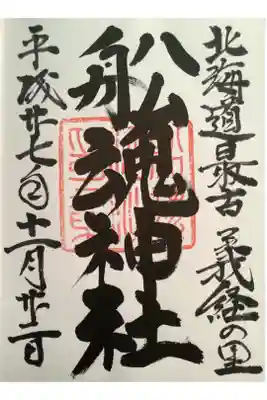 北海道最古 義経の里
舩魂神社
平成廿七年十一月廿二日